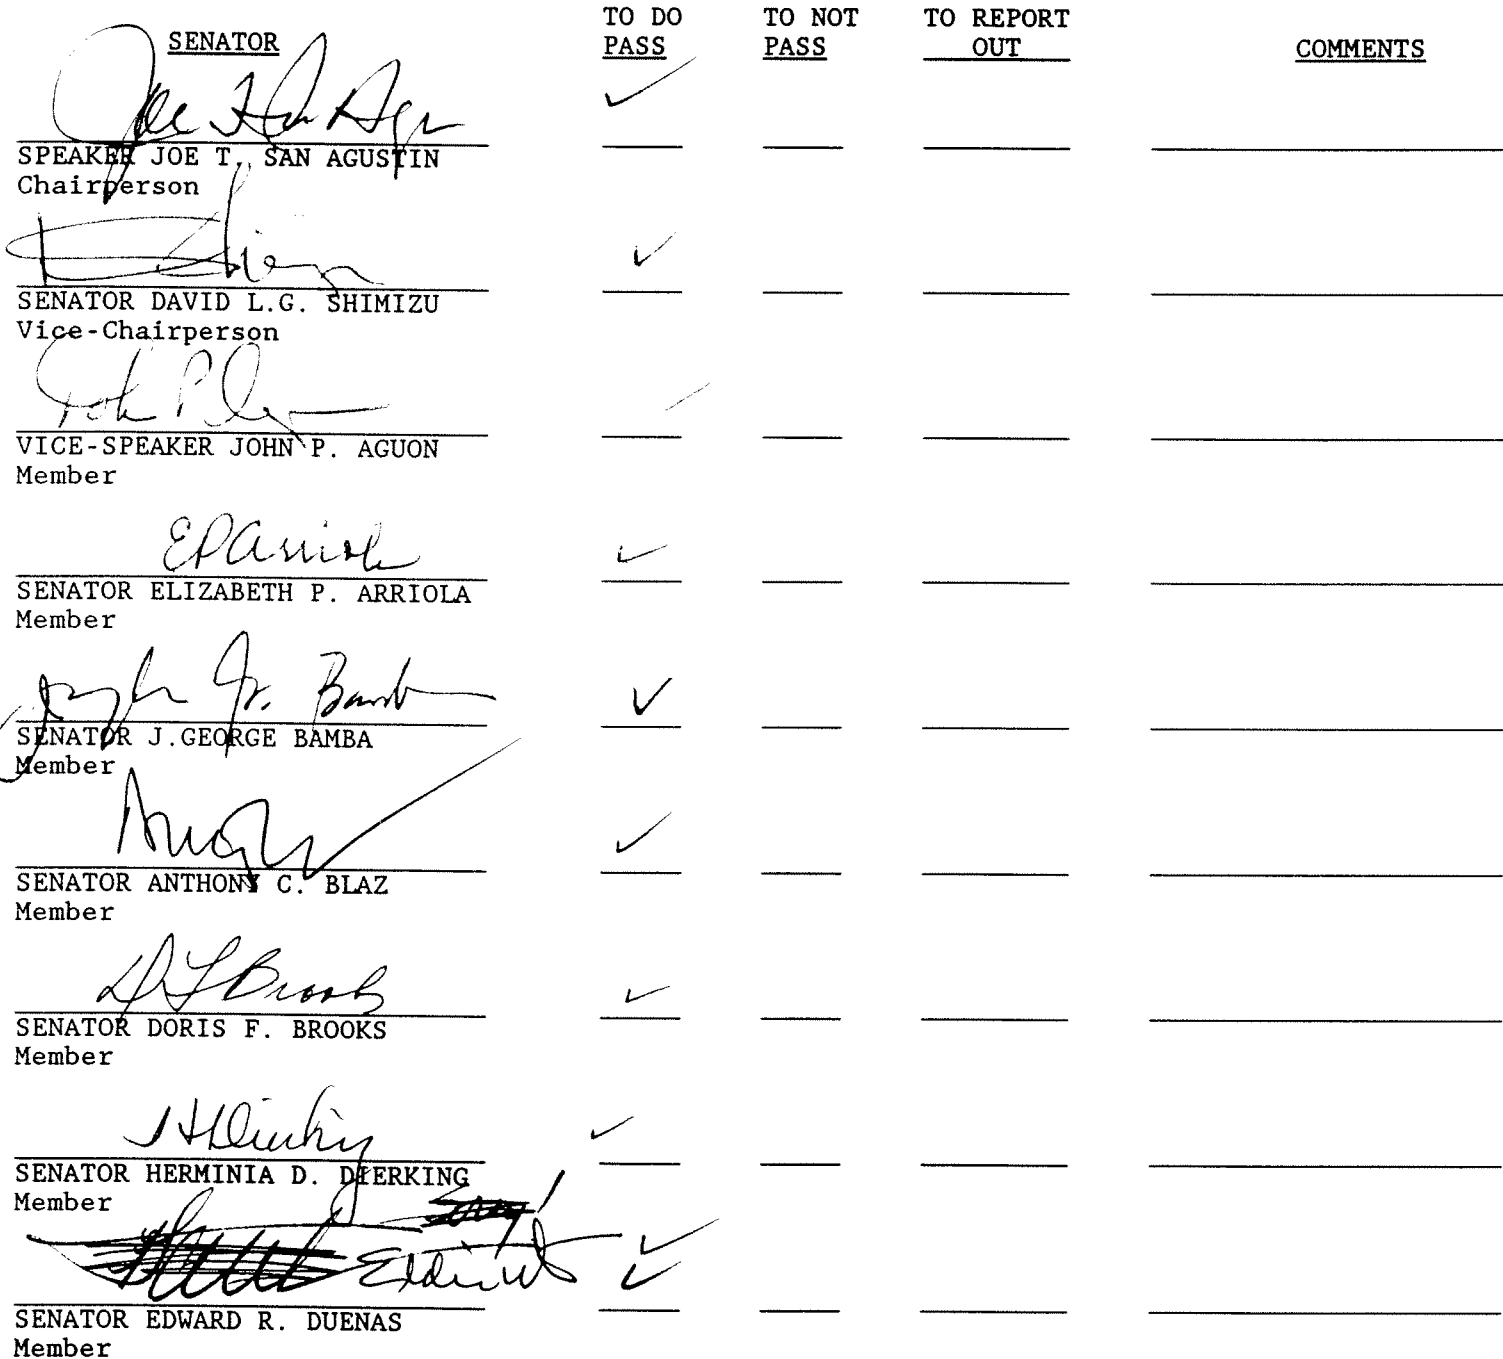 SENATOR TO DO PASS TO NOT PASS TO REPORT OUT COMMENTS
Joe T. San Agustin ✓
SPEAKER JOE T. SAN AGUSTIN
Chairperson
✓
SENATOR DAVID L.G. SHIMIZU
Vice-Chairperson
✓
VICE-SPEAKER JOHN P. AGUON
Member
EPArriola ✓
SENATOR ELIZABETH P. ARRIOLA
Member
✓
SENATOR J.GEORGE BAMBA
Member
✓
SENATOR ANTHONY C. BLAZ
Member
DF Brooks ✓
SENATOR DORIS F. BROOKS
Member
HDierking ✓
SENATOR HERMINIA D. DIERKING
Member
✓
✓
SENATOR EDWARD R. DUENAS
Member